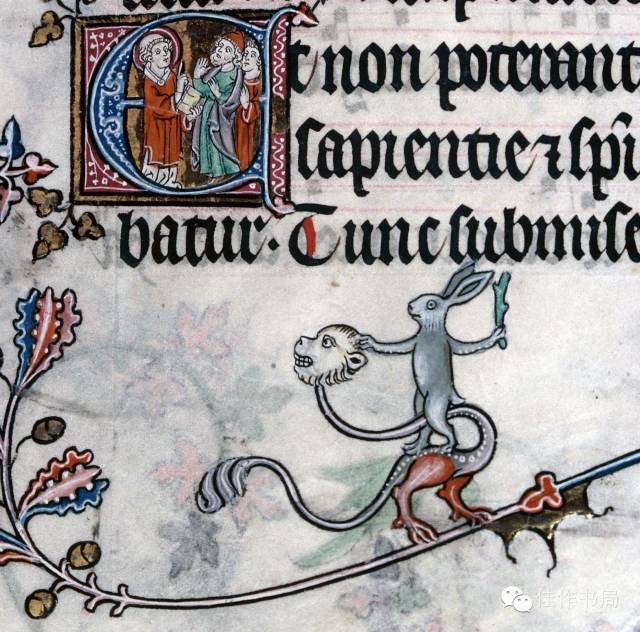 t non poterant
sapientie ⁊ spi
batur. Tunc submise
佳作书局